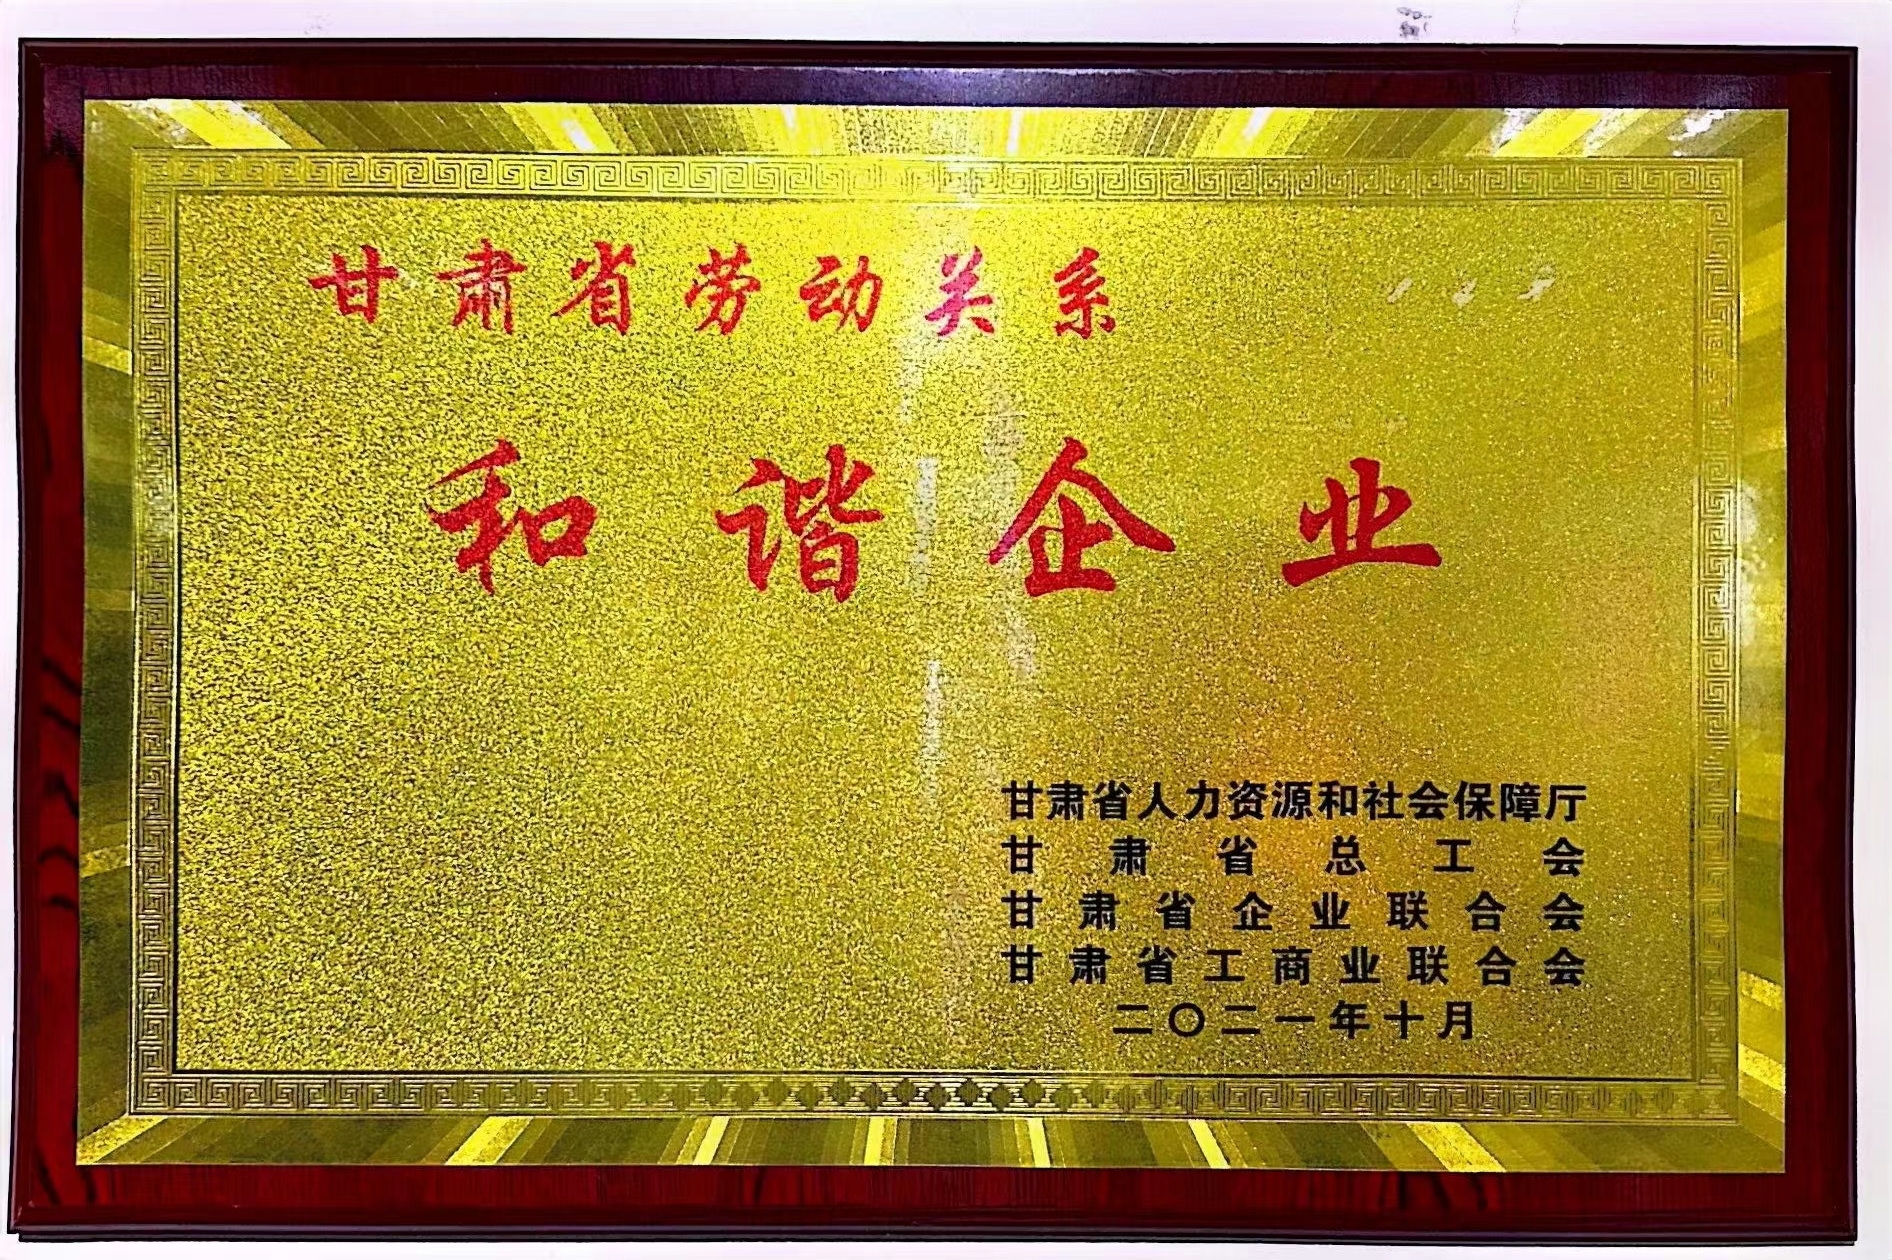 甘肃省劳动关系
和谐企业
甘肃省人力资源和社会保障厅
甘肃省总工会
甘肃省企业联合会
甘肃省工商业联合会
二〇二一年十月